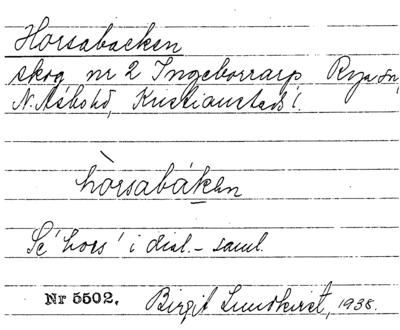 Horsabacken
skog nr 2 Ingeborrarp Rya sn,
N. Åsbo hd, Kristianstads l.
hòrsabákən
Se 'hors' i dial.-saml.
Nr 5502. Birgit Lundkvist, 1938.